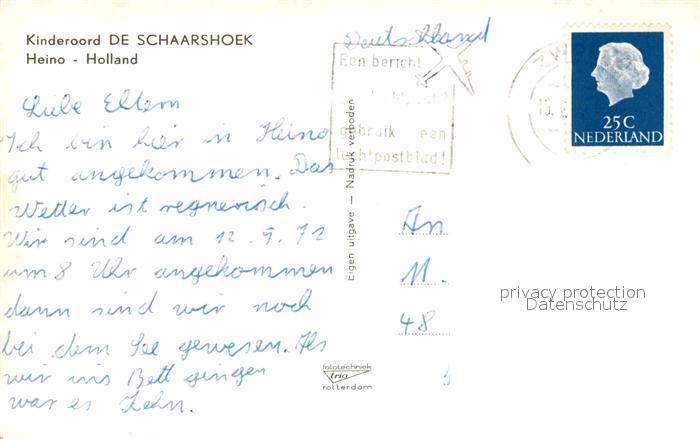 Kinderoord DE SCHAARSHOEK
Heino - Holland
Deutschland
Een bericht
gebruik een
luchtpostblad!
25C
NEDERLAND
Liebe Eltern
Ich bin hier in Heino
gut angekommen. Das
Wetter ist regnerisch.
Wir sind am 12.9.72
um 8 Uhr angekommen
dann sind wir noch
bei dem See gewesen. Als
wir ins Bett gingen
war es Zehn.
Eigen uitgave — Nadruk verboden
fototechniek
trio
rotterdam
An
M.
48
privacy protection
Datenschutz